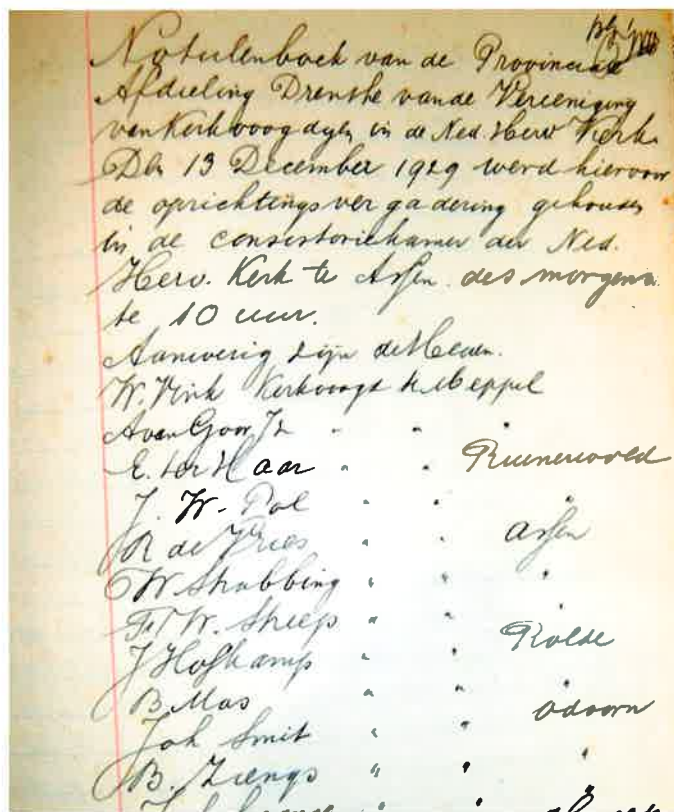 Notulenboek van de Provinciale
Afdeeling Drenthe van de Vereeniging
van Kerkvoogdijen in de Ned. Herv. Kerk
Den 13 December 1929 werd hiervoor
de oprichtingsvergadering gehouden
in de consistoriekamer der Ned.
Herv. Kerk te Assen des morgens
te 10 uur.
Aanwezig zijn de Heeren.
W. Vink Kerkvoogd te Meppel
A van Goor Jz " " "
E. ter Haar " " Ruinerwold
J. W. Pol " " "
R de Vries " " Assen
W Strabbing " " "
W. Sheep " " "
J Hofkamp " " Rolde
B Mos " " Odoorn
Joh Smit " " "
B. Ziengs " " "